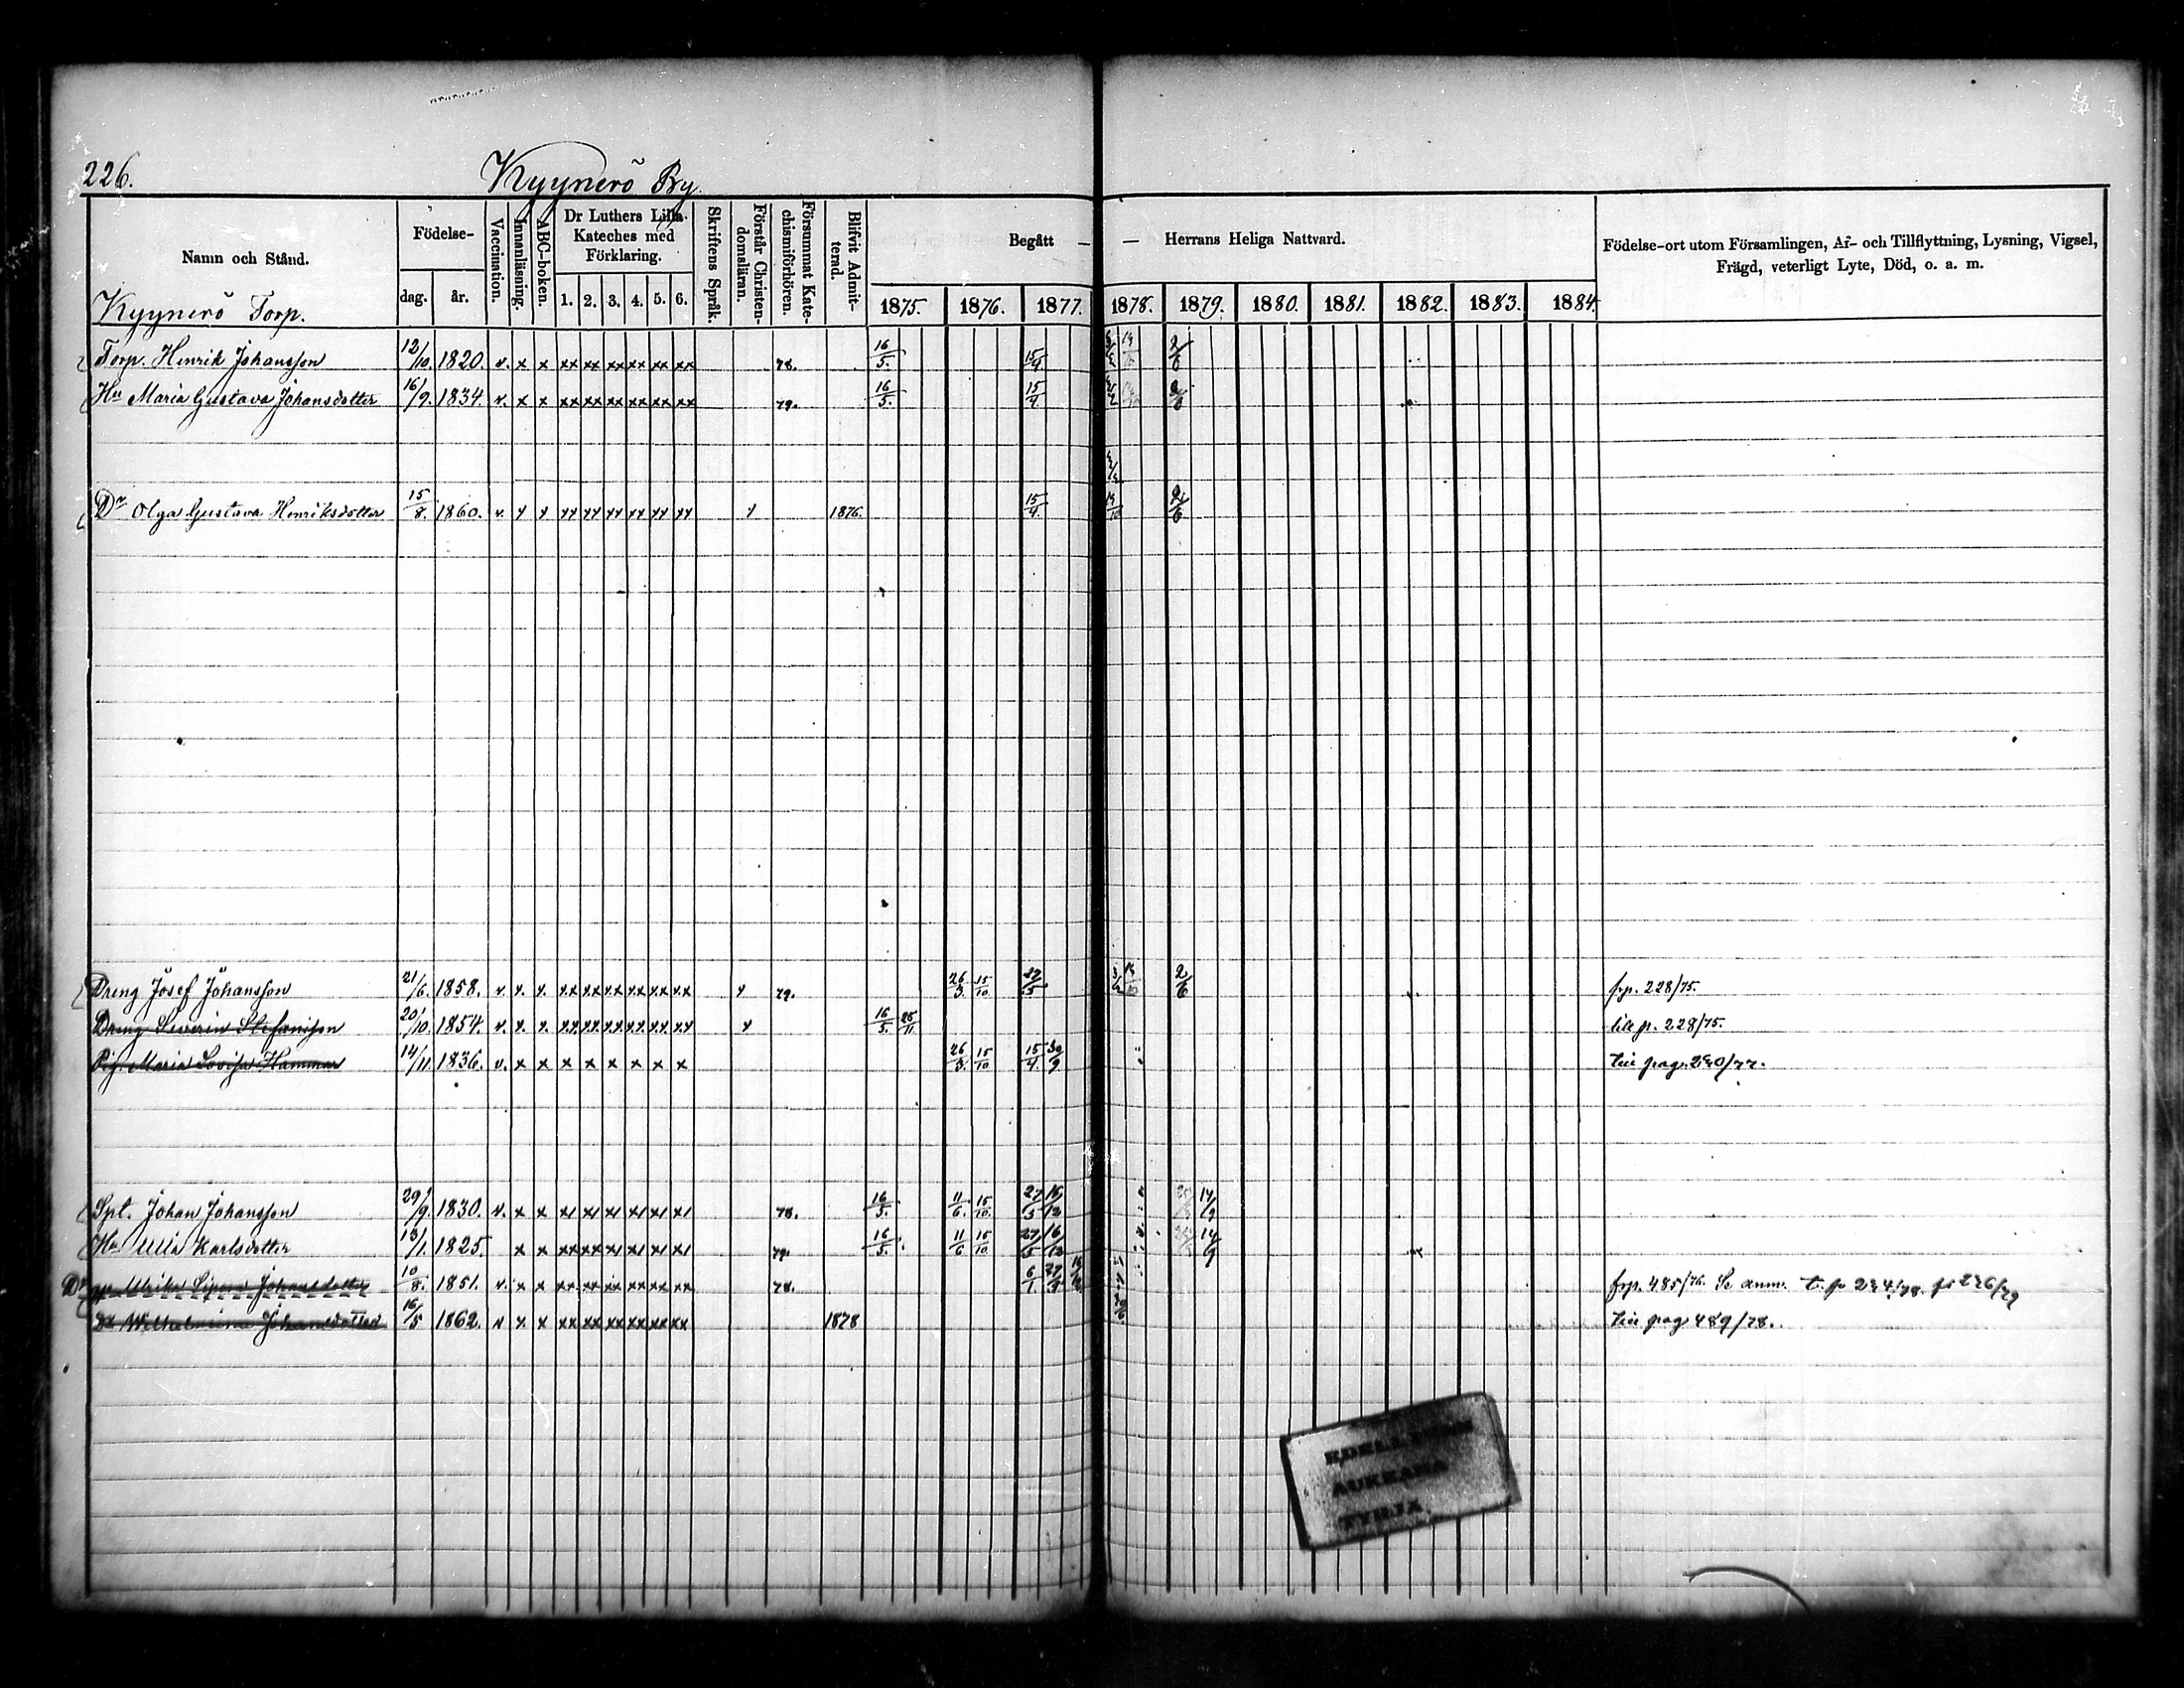 226.
Kyynerö By.
Namn och Stånd.
Födelse-
dag. år.
Vaccination.
Innanläsning.
ABC-boken.
Dr Luthers Lilla
Kateches med
Förklaring.
1. 2. 3. 4. 5. 6.
Skriftens Språk.
Förstår Christen-
domsläran.
Försummat Kate-
chismiförhören.
Blifvit Admit-
terad.
Begått — — Herrans Heliga Nattvard.
1875. 1876. 1877. 1878. 1879. 1880. 1881. 1882. 1883. 1884.
Födelse-ort utom Församlingen, Af- och Tillflyttning, Lysning, Vigsel,
Frägd, veterligt Lyte, Död, o. a. m.
Kyynerö Torp.
Torp. Henrik Johansson 12/10. 1820. v. x x xx xx xx xx xx xx 78. 16/5. 15/4 2/6
Hu Maria Gustava Johansdotter 16/9. 1834. v. x x xx xx xx xx xx xx 79. 16/5. 15/4 2/6
Dr Olga Gustava Henriksdotter 15/8. 1860. v. x x xx xx xx xx xx xx x 1876. 15/4. 2/6
Dreng Josef Johansson 21/6. 1858. v. x. x. xx xx xx xx xx xx x 79. 26/3. 15/10. 27/5 2/6 frp. 228/75.
Dreng Severin Stefansson 20/10. 1854. v. x. x. xx xx xx xx xx xx x 16/5. 25/11 till p. 228/75.
Pig. Maria Lovisa Hammar 14/11. 1836. v. x x x x x x x x 26/3. 15/10 15/4. 30/9 till pag. 240/77.
Spt. Johan Johansson 29/9. 1830. v. x x x x x x x x 78. 16/5. 11/6. 15/10. 27/5 16/12 14/9
Hu Ulla Karlsdotter 13/1. 1825. x x xx xx x x x x 79. 16/5. 11/6 15/10 27/5 16/12 14/9
Dr Ulrika Johansdotter 10/8. 1851. v. x x xx xx xx xx xx xx 78. 6/1. frp. 485/76. Se anm. t. p 234/78. fr 236/79
Dr Wilhelmina Johansdotter 16/5 1862. v x x xx xx xx xx xx xx 1878 till pag 489/78.
AUKEAMA
TYHJÄ